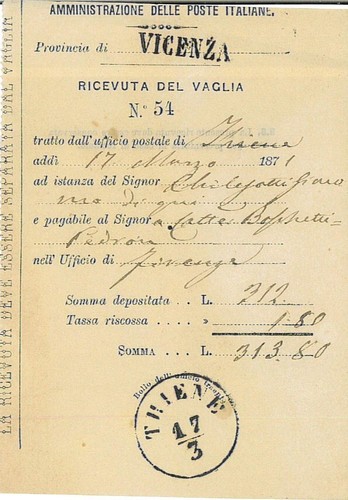 AMMINISTRAZIONE DELLE POSTE ITALIANE.
Provincia di VICENZA
RICEVUTA DEL VAGLIA
N.° 54
tratto dall'ufficio postale di Thiene
addì 17 Marzo 1871
ad istanza del Signor Chilesotti
di qui
e pagabile al Signor
nell'Ufficio di Firenze
Somma depositata . . L. 312.
Tassa riscossa . . . » 1.80
SOMMA . . L. 313.80
Bollo dell'
THIENE
17
3
LA RICEVUTA DEVE ESSERE SEPARATA DAL VAGLIA